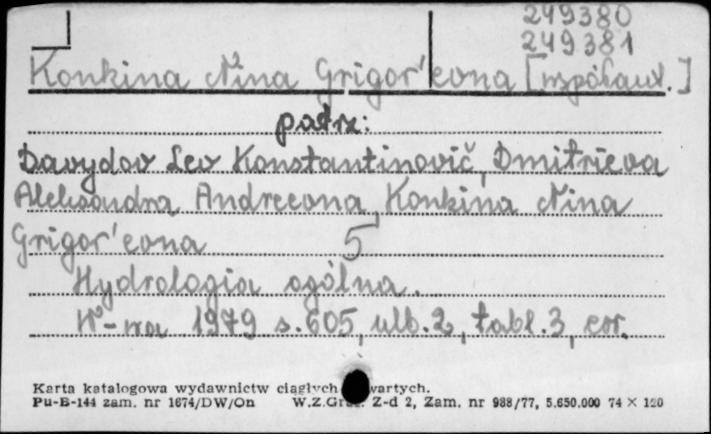 249380
249381
Konkina Nina Grigor'evna [współaut.]
patrz:
Davydov Lev Konstantinovič, Dmitrieva
Aleksandra Andreevna, Konkina Nina
Grigor'evna 5
Hydrologia ogólna.
W-wa 1979 s. 605, ulb. 2, tabl. 3, err.
Karta katalogowa wydawnictw ciągłych wartych.
Pu-B-144 zam. nr 1674/DW/On W.Z.Graf. Z-d 2, Zam. nr 988/77, 5.650.000 74 × 120